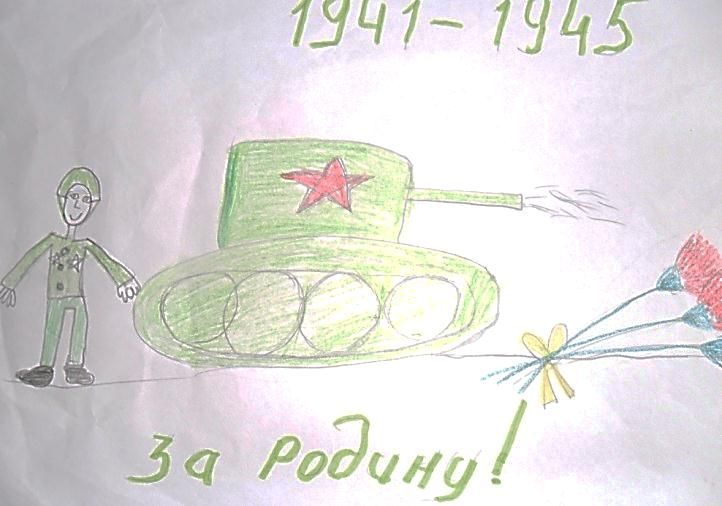 1941-1945
За Родину!